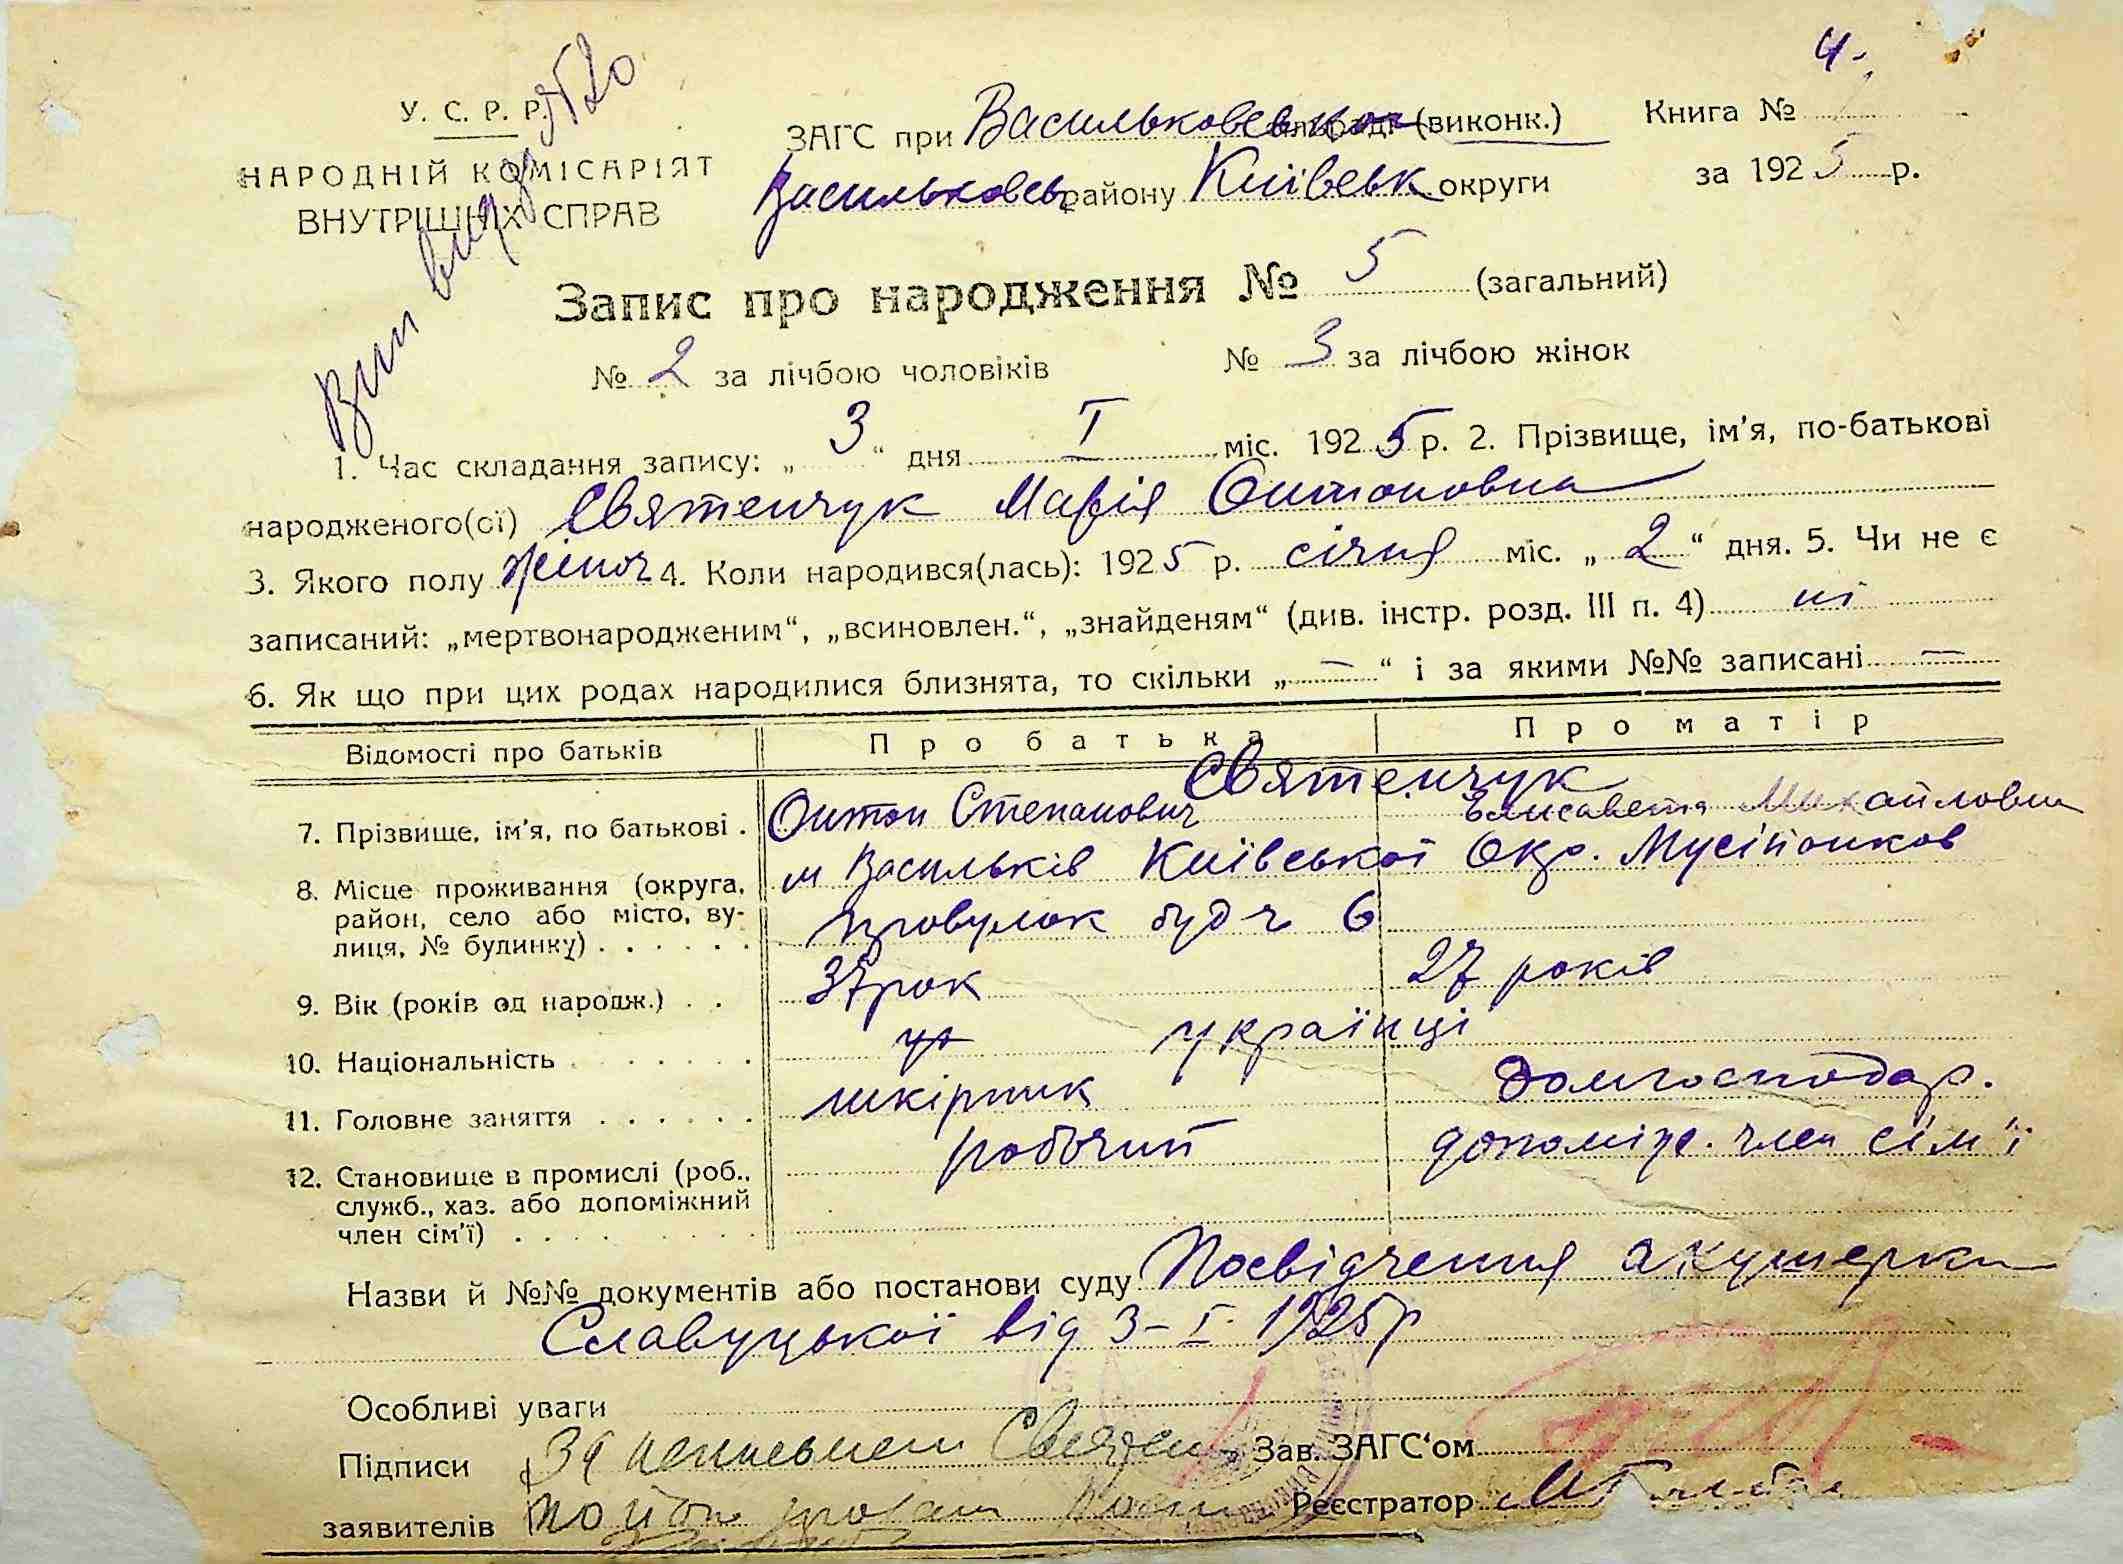 4.
У. С. Р. Р.
НАРОДНІЙ КОМІСАРІЯТ
ВНУТРІШНІХ СПРАВ
Вип видар № 20
ЗАГС при Васильковськом (виконк.)
Васильковськ району Київськ округи
Книга №
за 1925 р.
Запис про народження № 5 (загальний)
№ 2 за лічбою чоловіків № 3 за лічбою жінок
1. Час складання запису: „ 3 “ дня I міс. 1925 р. 2. Прізвище, ім’я, по-батькові
народженого(ої) Святенчук Марія Онтоновна
3. Якого полу жіноч 4. Коли народився(лась): 1925 р. січня міс. „ 2 “ дня. 5. Чи не є
записаний: „мертвонародженим“, „всиновлен.“, „знайденям“ (див. інстр. розд. III п. 4) ні
6. Як що при цих родах народилися близнята, то скільки „ — “ і за якими №№ записані —
Відомості про батьків Про батька Про матір
Святенчук
7. Прізвище, ім’я, по батькові . Онтон Степанович Елисавета Михайловна
8. Місце проживання (округа, район, село або місто, вулиця, № будинку) . . . . . .
м Васильків Київської Окр.
провулок буд ч 6
9. Вік (років од народж.) . . 37 рок 27 років
10. Національність . . . . . . . українці
11. Головне заняття . . . . . . шкірник домгосподар.
12. Становище в промислі (роб., служб., хаз. або допоміжний член сім’ї) . . . . . . . . .
робочий допоміж. член сім’ї
Назви й №№ документів або постанови суду Посвідчення акушерки
Славуцької від 3–I–1925 р
Особливі уваги
Підписи За
заявителів
Зав. ЗАГС‘ом
Реєстратор